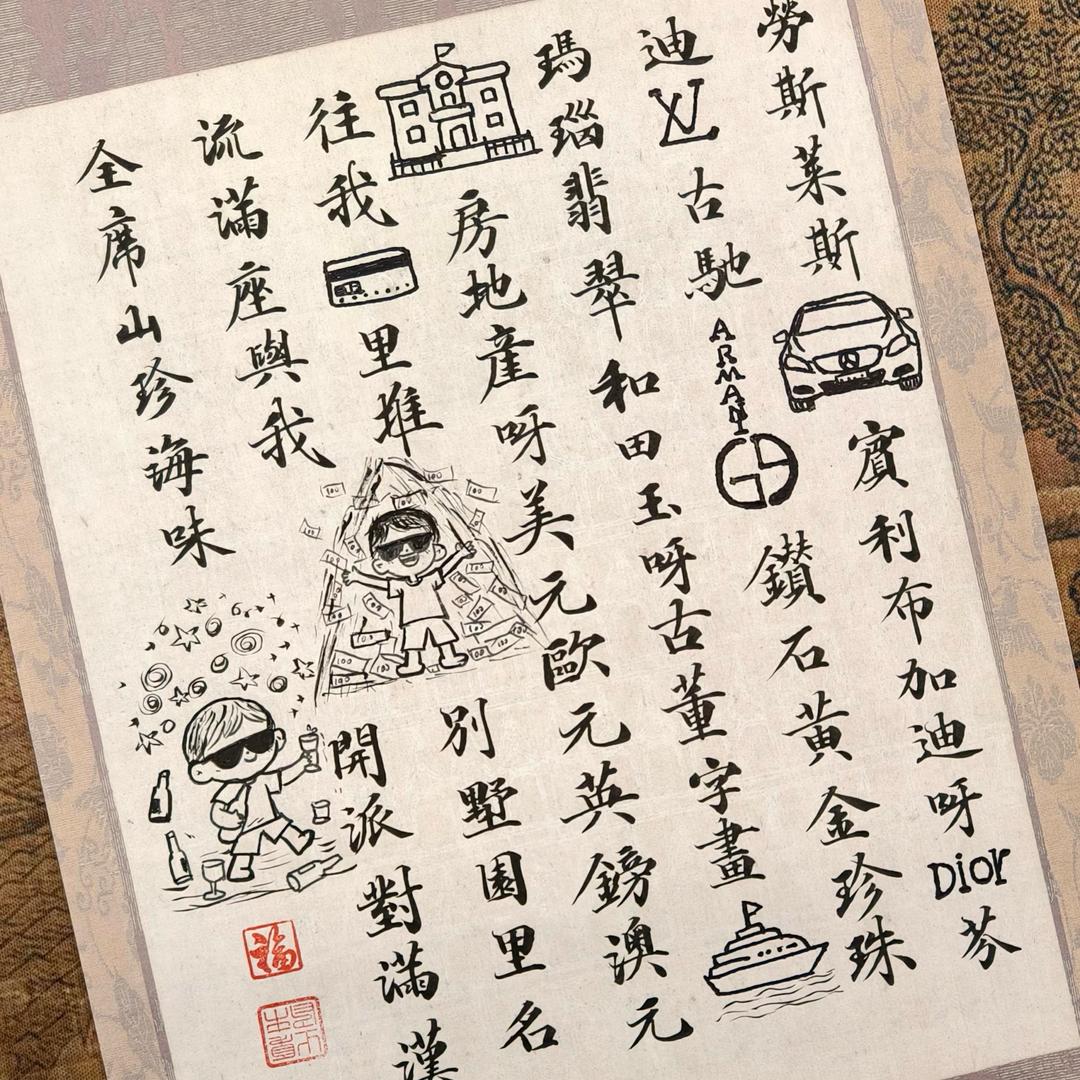 勞斯萊斯賓利布加迪呀Dior芬
迪LV古馳ARMANI鑽石黃金珍珠
瑪瑙翡翠和田玉呀古董字畫
房地產呀美元歐元英鎊澳元
往我里堆別墅園里名
流滿座與我開派對滿漢
全席山珍海味
福